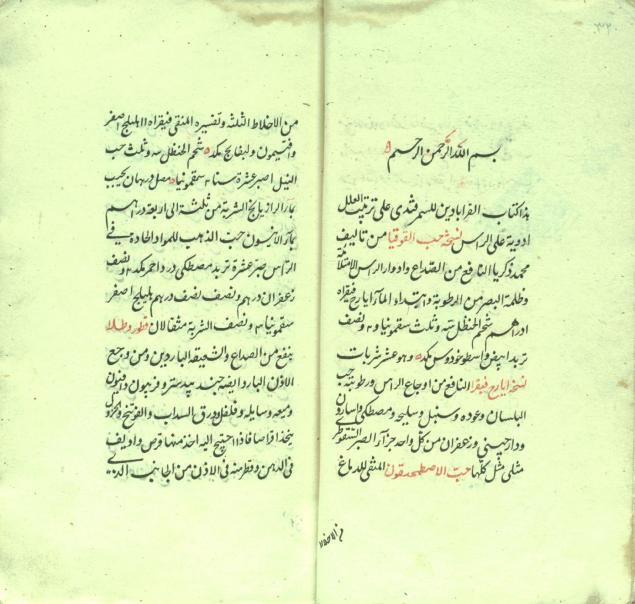 بسم الله الرحمن الرحيم
هذا كتاب القرابادين للسمرقندى على ترتيب العلل
ادوية على الراس نسخة حب القوقيا من تاليف
محمد زكريا النافع من الصداع وادوار الراس الامتلائية
وظلمة البصر من الرطوبة وابتداء الماء ايارج فيقراه
دراهم شحم الحنظل سه وثلث سقمونيا ونصف
تربد ابيض واسطوخودوس مكده وهو عشر شربات
نسخة ايارج فيقرا النافع من اوجاع الراس ورطوبته حب
البلسان وعوده وسنبل وسليخه ومصطكى واسارون
ودارچينى وزعفران من كل واحد جزآ الصبر السقوطر
مثلى مثل كلها حبّ الاصطمحيقون المنقى للدماغ
من الاخلاط
من الاخلاط الثلثه وتفسيره المنقى فيقراه هليلج اصفر
وافتيمون مكده شحم الحنظل سه وثلث حب
النيل اصبر عشرة سقمونيا بحبب
بماء الرازيانج الشربة من ثلثة الى اربعة دراهم
بماء الافتيمون حب الذهب للمواد الحادة فى
الراس صبر عشرة تربد مصطكى ورد احمر ونصف
زعفران درهم ونصف نصف درهم هليلج اصفر
سقمونيا ونصف الشربة مثقالان قطور وطلا
ينفع من الصداع والشقيقة الباردين ومن وجع
الاذن البارد ايضه جند بيدستر وفربيون وافيون
وميعه وسايله وفلفل ورق السداب والفوتنج وخردل
يتخذ اقراصا فاذا احتيج اليه اخذ منها قرص واديف
فى الدهن وقطر منه فى الاذن من الجانب الذى